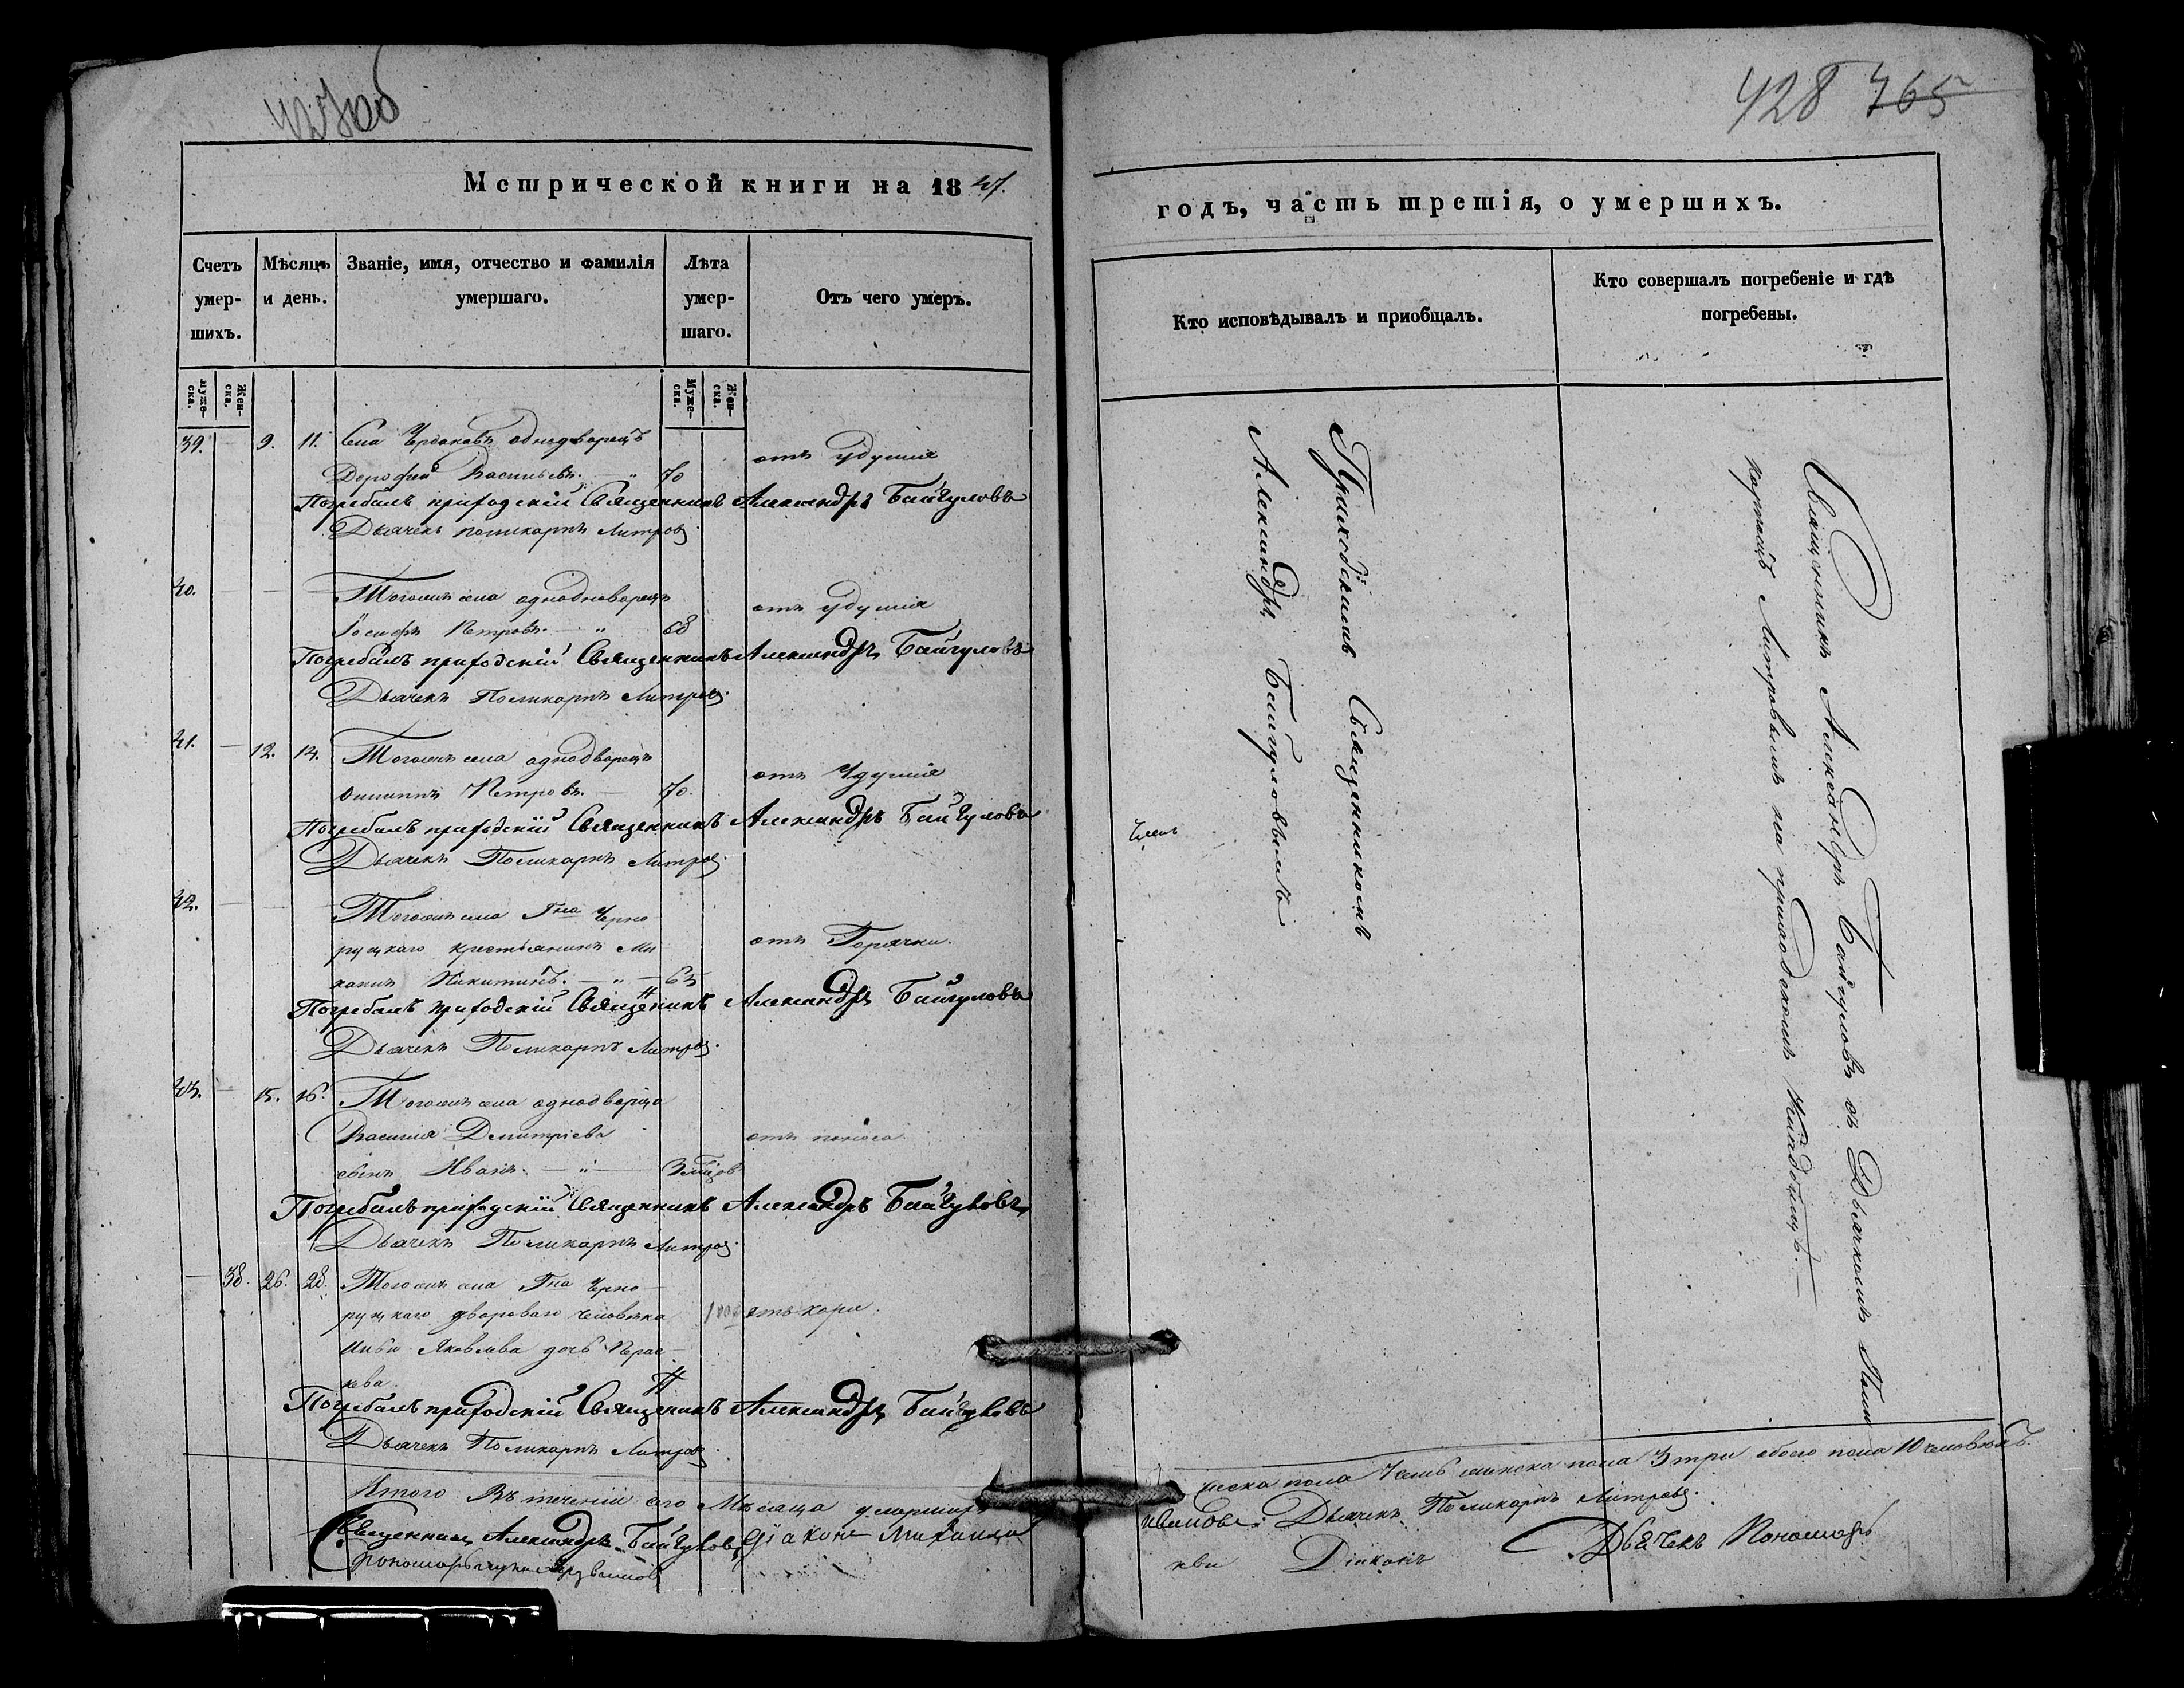 427об
Метрической книги на 1847.
Счетъ умер-шихъ.
Мѣсяцъ и день.
Званіе, имя, отчество и фамилія умершаго.
Лѣта умер-шаго.
Отъ чего умеръ.
муже-ска. Жен-ска.
Муже-ска. Жен-ска.
39. — 9. 11. Села однодворецъ отъ удушія
Дорофей Васильевъ. — " 70
Погребалъ приходскій Священникъ Александръ Байгуловъ
Дьячекъ Поликарпъ Литров
40. — Тогожъ села однодворецъ отъ удушія
Іосифъ Петровъ. — " 68
Погребалъ приходскій Священникъ Александръ Байгуловъ
Дьячекъ Поликарпъ Литров.
41. — 12. 14. Тогожъ села однодворецъ отъ удушія
Филиппъ Петровъ. — 70.
Погребалъ приходскій Священникъ Александръ Байгуловъ
Дьячекъ Поликарпъ Литров.
42. — Тогожъ села Гна Черно
руцкаго крестьянинъ Ми отъ Горячки.
Никитинъ. — " — 65
Погребалъ приходскій Священникъ Александръ Байгуловъ
Дьячекъ Поликарпъ Литров.
43. — 15. 16. Тогожъ села однодворца
Василія Дмитріева отъ поноса
сынъ Иванъ. — " —
Погребалъ приходскій Священникъ Александръ Байгуловъ
Дьячекъ Поликарпъ Литров.
— 38. 26. 28. Тогожъ села Гна Черно-
руцкаго двороваго человѣка отъ кори.
Яковлева дочь Парас-
кева.
Погребалъ приходскій Священникъ Александръ Байгуловъ
Дьячекъ Поликарпъ Литров.
Итого Въ теченіи сего Мѣсяца умершихъ
Священникъ Александръ Байгуловъ Діаконъ Михаилъ
пономарь
428 765
годъ, часть третія, о умершихъ.
Кто исповѣдывалъ и приобщалъ.
Кто совершалъ погребеніе и гдѣ погребены.
Приходскимъ Священникомъ
Александромъ Байгуловымъ
Священникъ Александръ Байгуловъ съ Дьячкомъ Поли
карпомъ Литровымъ на приходскомъ Кладбищѣ. —
ческа пола 7 семь женска пола 3 три обоего пола 10 человѣкъ.
Ивановъ. Дьячекъ Поликарпъ Литров.
Діаконъ Дьячекъ Пономарь